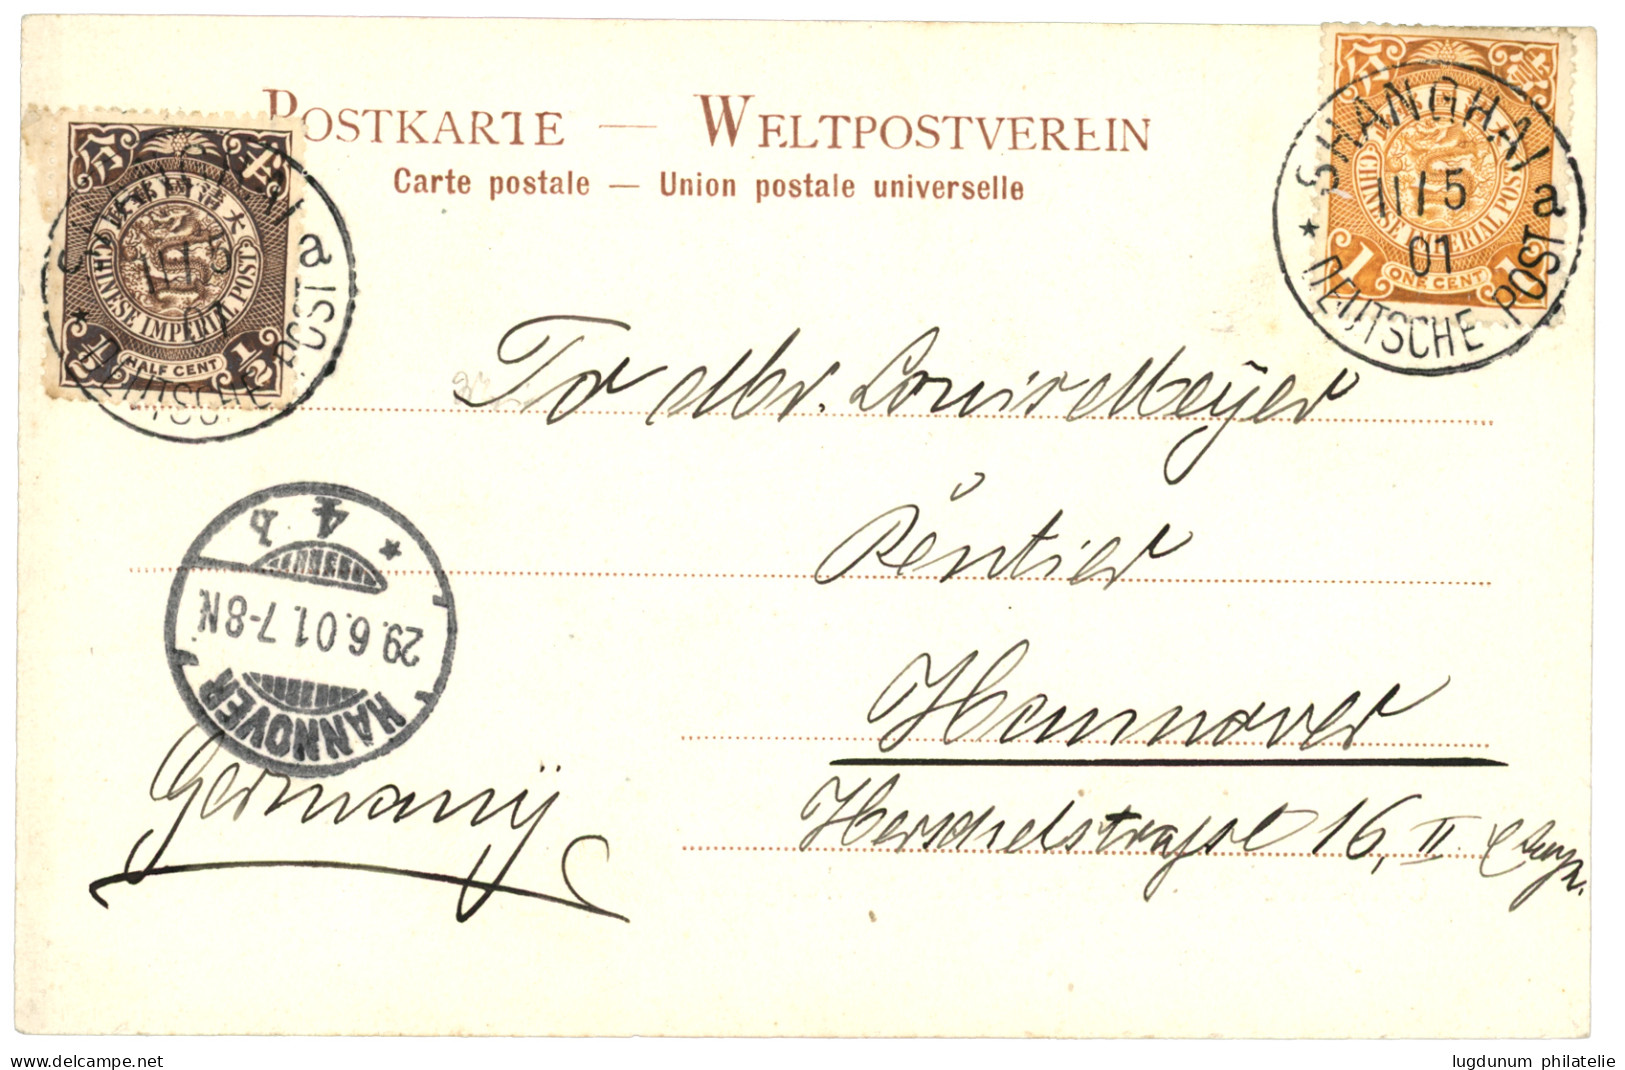 POSTKARTE — WELTPOSTVEREIN
Carte postale — Union postale universelle
CHINESE IMPERIAL POST
HALF CENT
1/2 1/2
SHANGHAI
11/5
01
a
* DEUTSCHE POST
CHINESE IMPERIAL POST
1 ONE CENT 1
SHANGHAI
11/5
01
a
* DEUTSCHE POST
To Mr. Louis Meyer
Rentier
Hannover
Herschelstraße 16, II
Germany
HANNOVER
29.6.01.7-8N.
* 4 h
www.delcampe.net
lugdunum philatelie